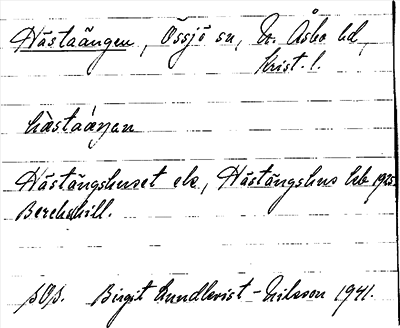 Hästaängen, Össjö sn, N. Åsbo hd,
Krist. l.
hästaáŋan
Hästängshuset ek, Hästängshus hb 1925.
Berchshill.
Birgit Lundkvist-Nilsson 1941.